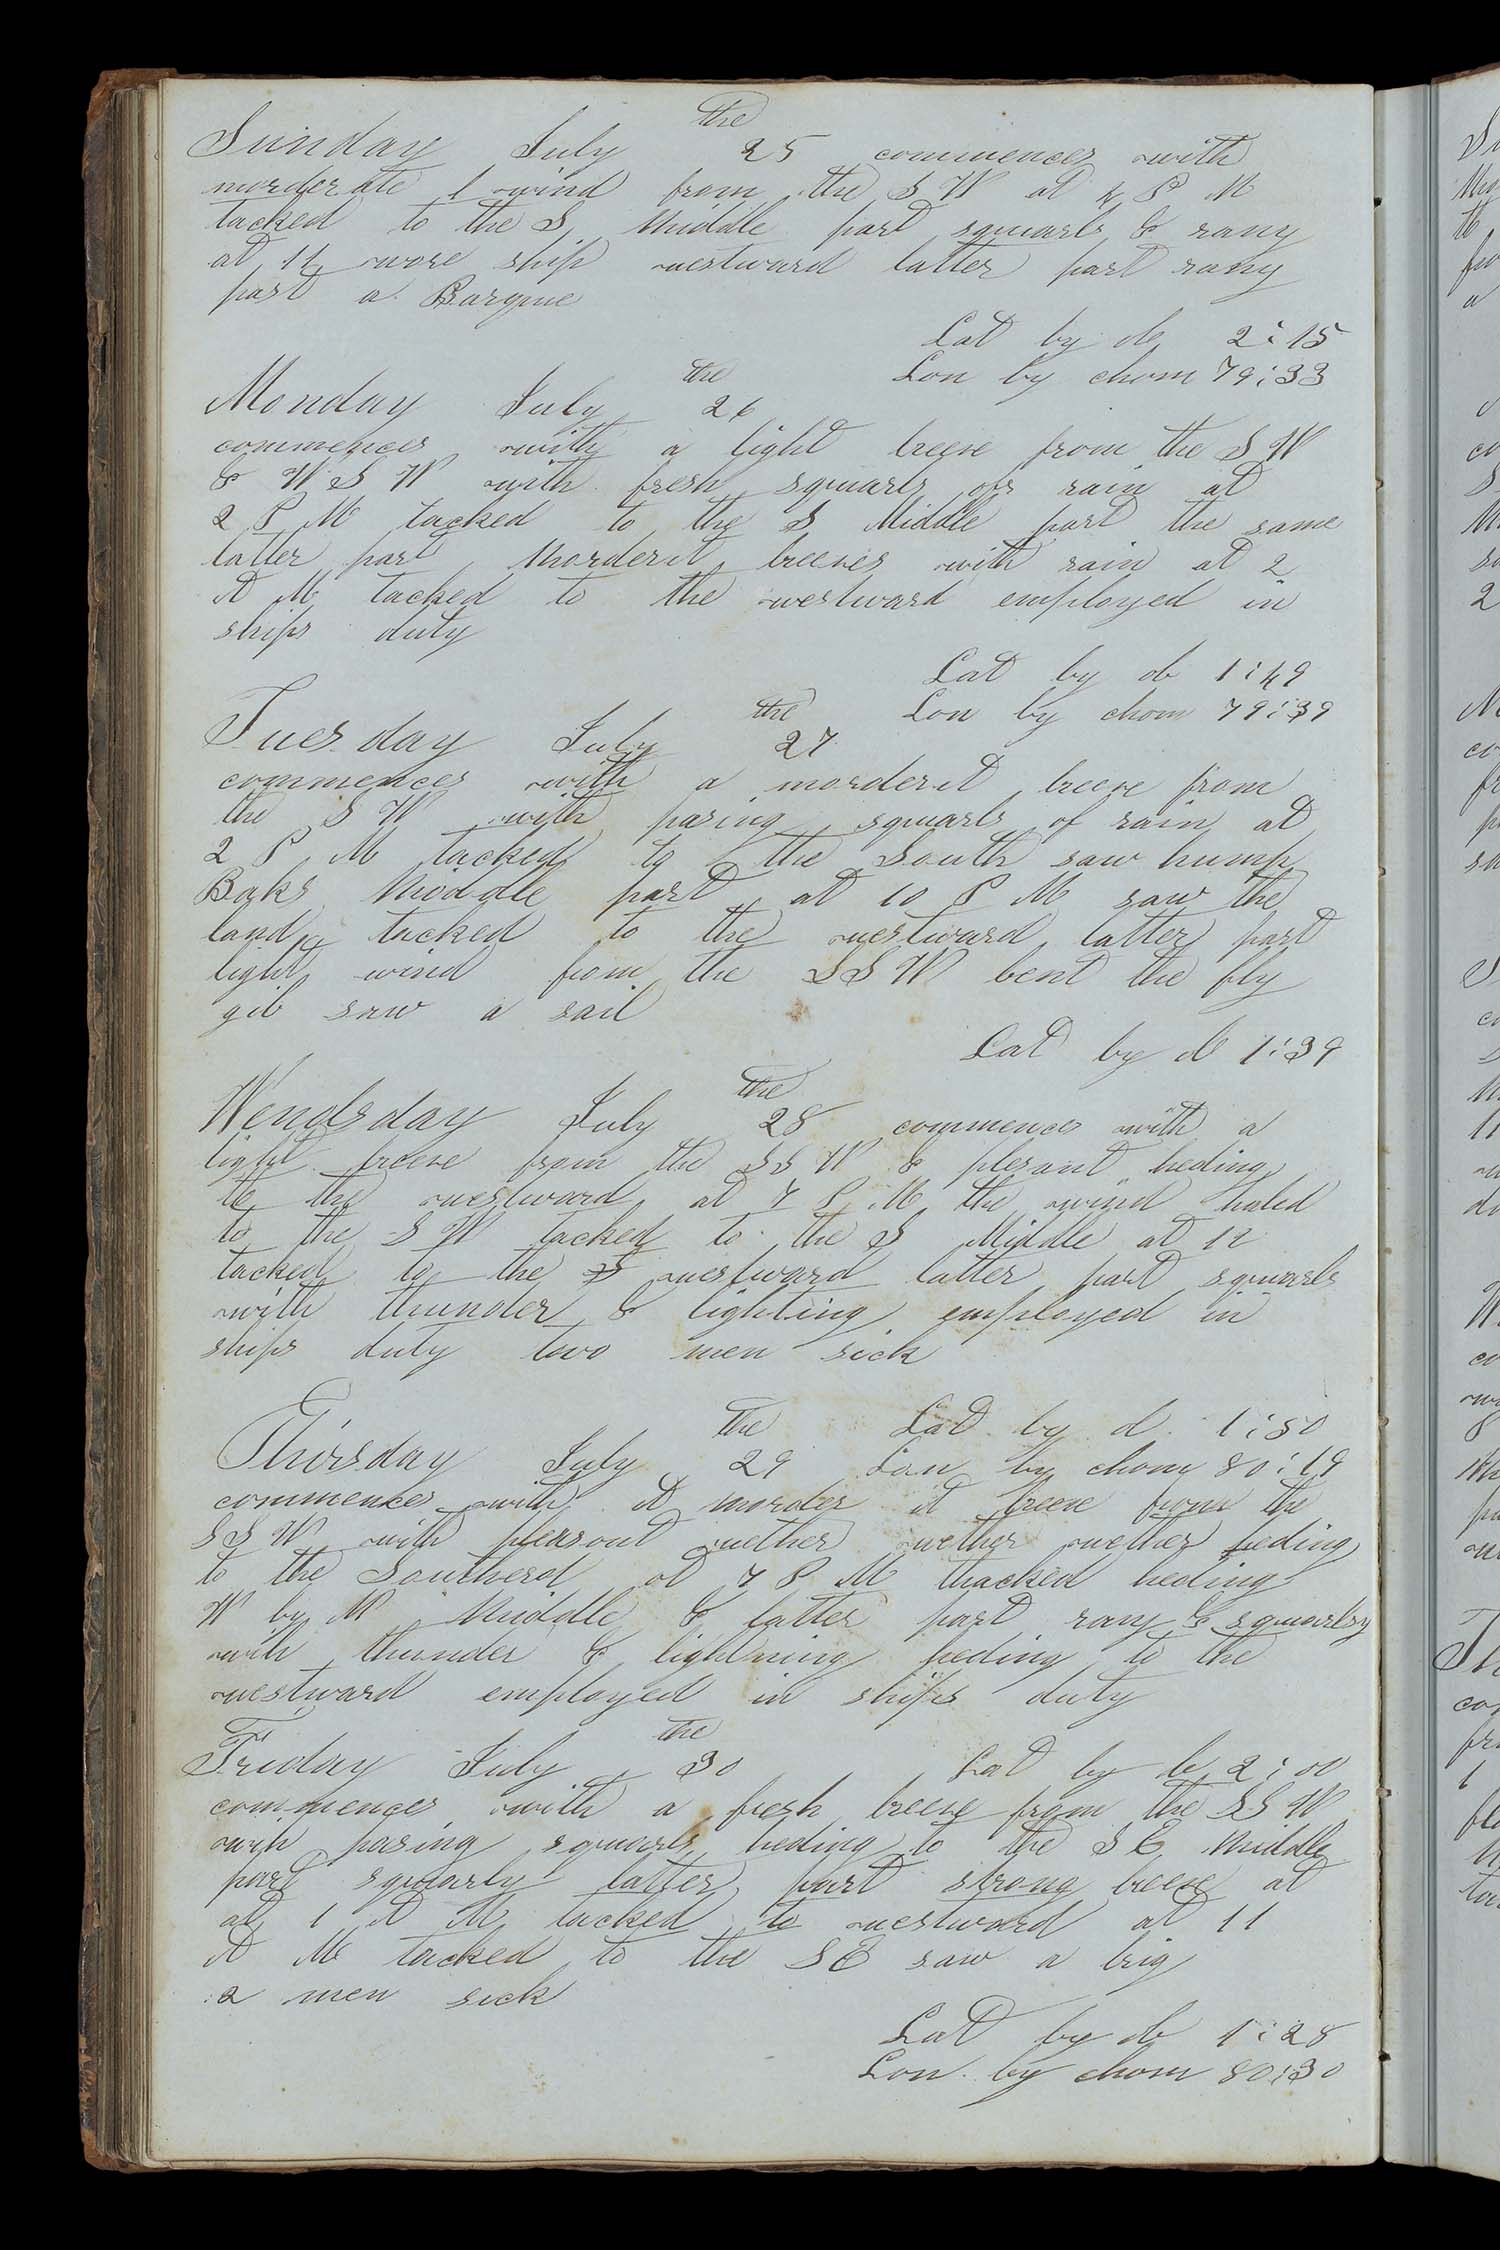 Sunday July 25 the commences with
morderate wind from the S W at 4 P M
tacked to the S Middle part squarls & rany
at 12 wore ship westward latter part rany
past a Barque
Lat by ob 2:15
Lon by chom 79:33
Monday July 26 the
commences with a light breese from the S W
& W S W with fresh squarls of rain at
2 P M tacked to the S Middle part the same
latter part Morderit breeses with rain at 2
A M tacked to the westward employed in
ships duty
Lat by ob 1:49
Lon by chom 79:39
Tuesday July 27 the
commences with a morderit breese from
the S W with pasing squarls of rain at
2 P M tacked to the South saw hump
Baks Middle part at 10 P M saw the
land tacked to the westward latter part
light wind from the S S W bent the fly
gib saw a sail
Lat by ob 1:39
Wendsday July 28 the commences with a
light breese from the S S W & plesant heding
to the westward at 7 P M the wind haled
to the S W tacked to the S Middle at 12
tacked to the westward latter part squarls
with thunder & lighting employed in
ships duty two men sick
Lat by ob 1:50
Thirsday July 29 the Lon by chom 80:19
commences with A morder it breese from the
S S W with pleasant wether wether wether heding
to the Southerd at 7 P M thacked heding
W by N Middle & latter part rany & squarlsy
with thunder & lightning heding to the
westward employed in ships duty
Friday July 30 the Lat by b 2:00
commences with a fresh breese from the S S W
with pasing squarls heding to the S E Middle
part squarly latter part strong breese at
at 1 A M tacked to westward at 11
A M tacked to the S E saw a brig
2 men sick
Lat by ob 1:28
Lon by chom 80:30